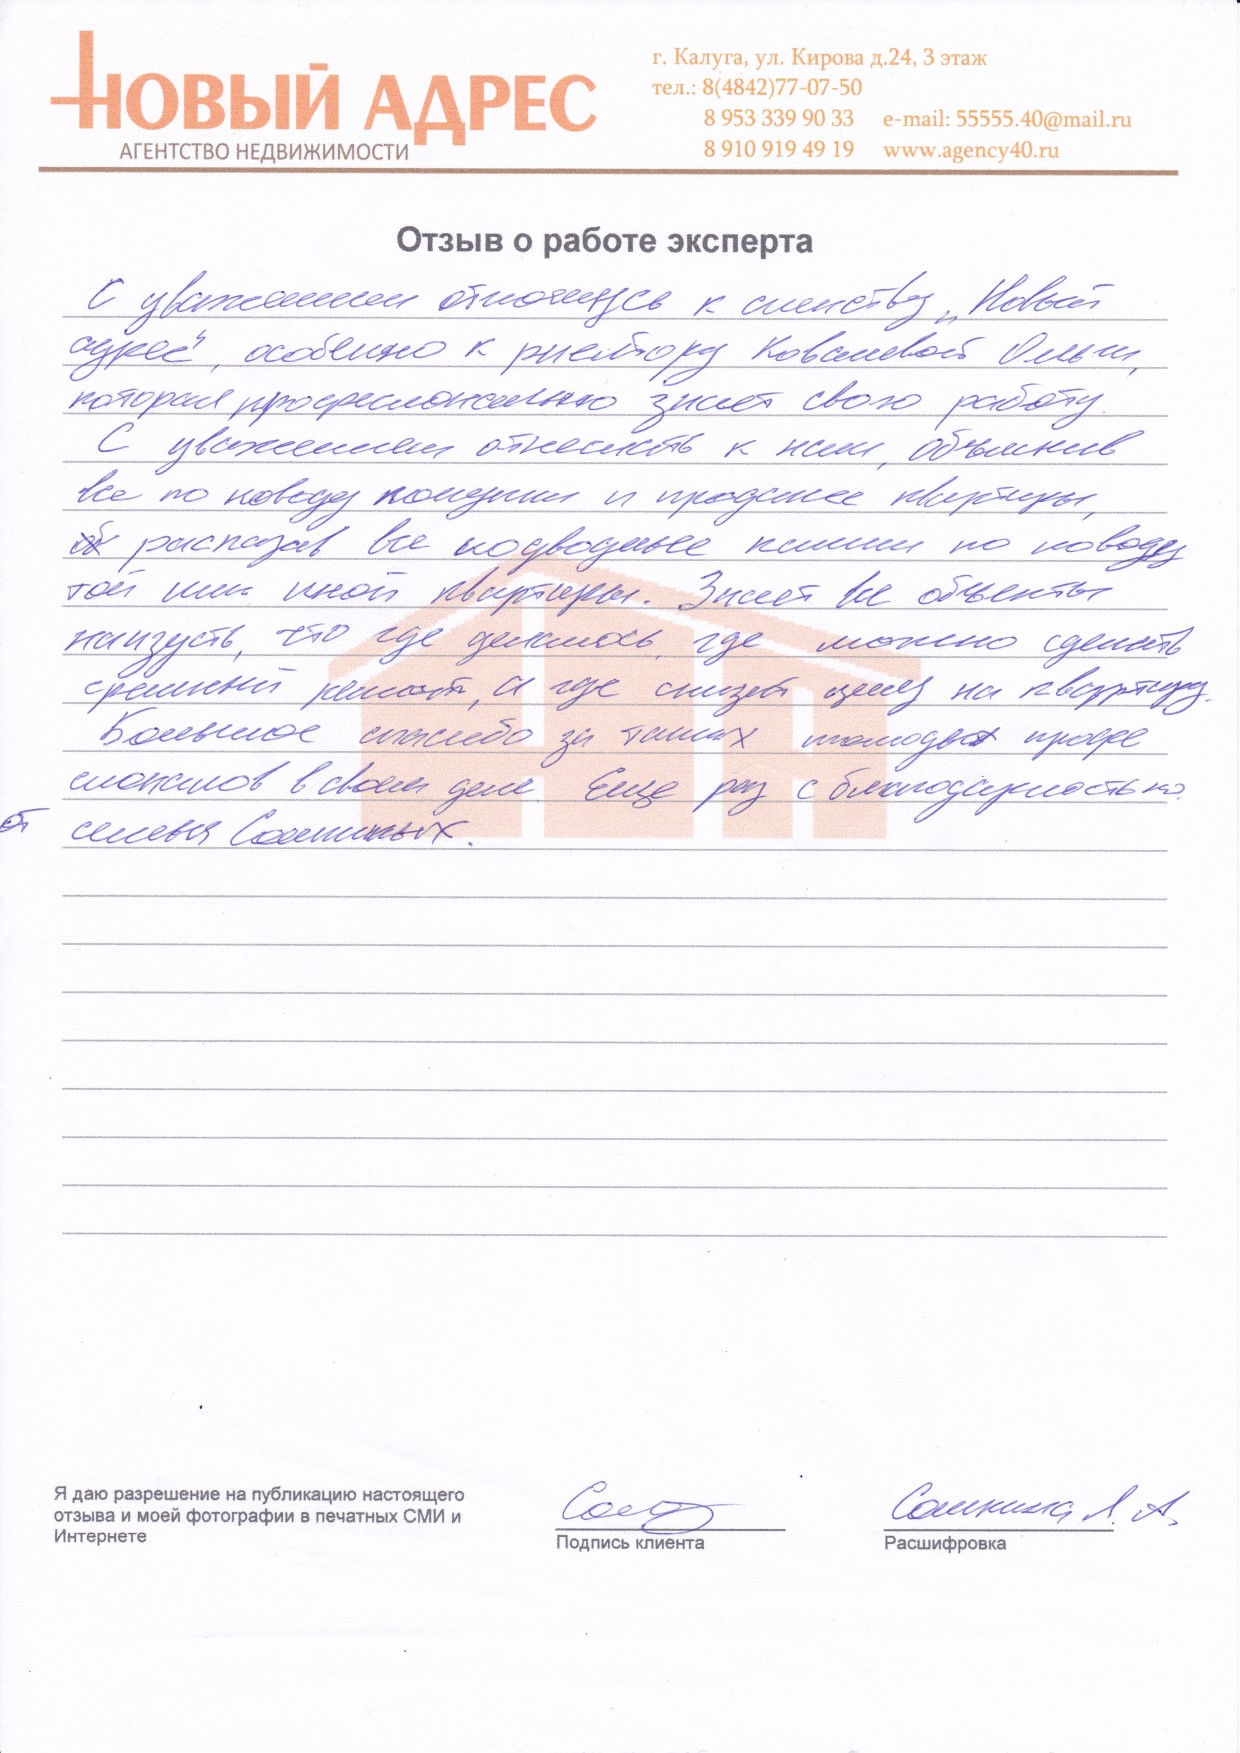 НОВЫЙ АДРЕС
АГЕНТСТВО НЕДВИЖИМОСТИ
г. Калуга, ул. Кирова д.24, 3 этаж
тел.: 8(4842)77-07-50
8 953 339 90 33 e-mail: 55555.40@mail.ru
8 910 919 49 19 www.agency40.ru
Отзыв о работе эксперта
С уважением отношусь к „Новый
адрес", особенно к риелтору Ковалевой Ольги,
которая профессионально знает свою работу.
С уважением отнеслась к нам, объяснив
все по поводу покупки и продаже квартиры,
рассказав все подводные камни по поводу
той или иной квартиры. Знает все объекты
наизусть, что где делалось, где можно сделать
ремонт, а где снизят цену на квартиру.
Большое спасибо за таких молодых профе
ссионалов в своем деле. Еще раз с благодарностью.
от семья
Я даю разрешение на публикацию настоящего
отзыва и моей фотографии в печатных СМИ и
Интернете
Подпись клиента
Л. А.
Расшифровка